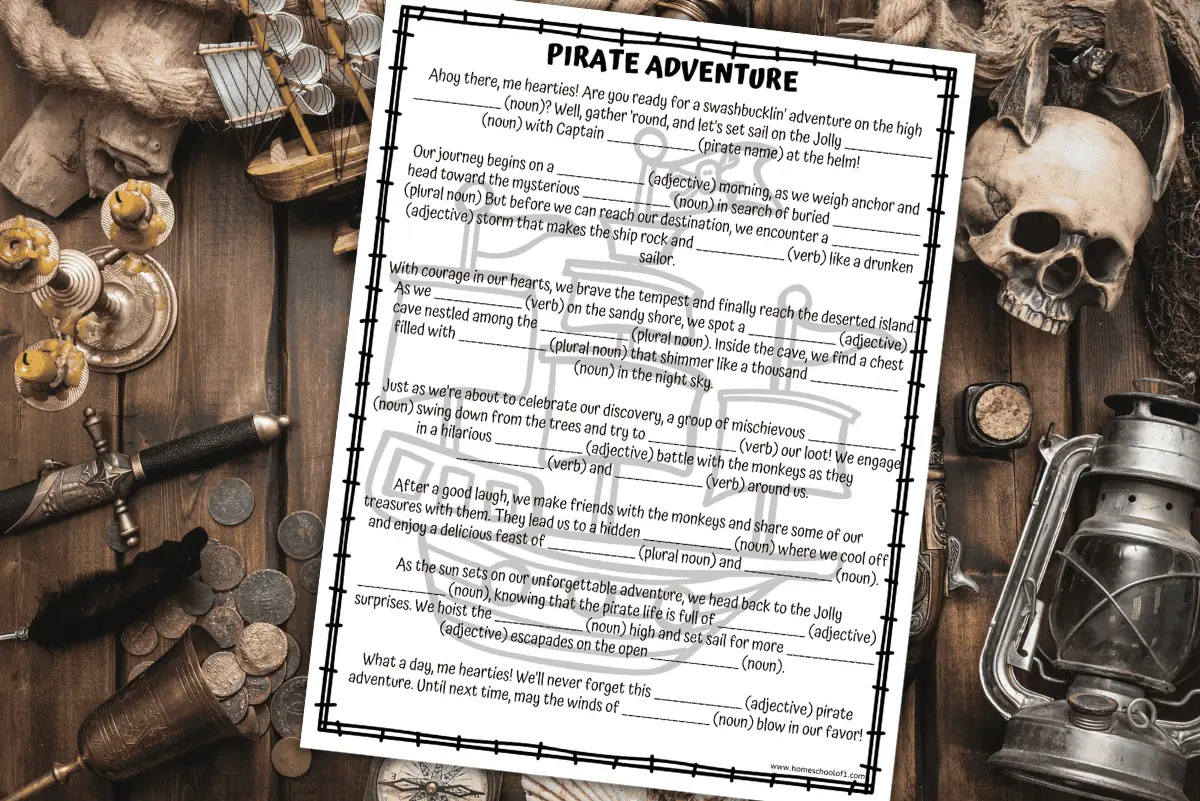 PIRATE ADVENTURE
Ahoy there, me hearties! Are you ready for a swashbucklin' adventure on the high
____________ (noun)? Well, gather 'round, and let's set sail on the Jolly ____________
(noun) with Captain ____________ (pirate name) at the helm!
Our journey begins on a ____________ (adjective) morning, as we weigh anchor and
head toward the mysterious ____________ (noun) in search of buried ____________
(plural noun) But before we can reach our destination, we encounter a ____________
(adjective) storm that makes the ship rock and ____________ (verb) like a drunken
sailor.
With courage in our hearts, we brave the tempest and finally reach the deserted island.
As we ____________ (verb) on the sandy shore, we spot a ____________ (adjective)
cave nestled among the ____________ (plural noun). Inside the cave, we find a chest
filled with ____________ (plural noun) that shimmer like a thousand ____________
(noun) in the night sky.
Just as we're about to celebrate our discovery, a group of mischievous ____________
(noun) swing down from the trees and try to ____________ (verb) our loot! We engage
in a hilarious ____________ (adjective) battle with the monkeys as they
____________ (verb) and ____________ (verb) around us.
After a good laugh, we make friends with the monkeys and share some of our
treasures with them. They lead us to a hidden ____________ (noun) where we cool off
and enjoy a delicious feast of ____________ (plural noun) and ____________ (noun).
As the sun sets on our unforgettable adventure, we head back to the Jolly
____________ (noun), knowing that the pirate life is full of ____________ (adjective)
surprises. We hoist the ____________ (noun) high and set sail for more ____________
(adjective) escapades on the open ____________ (noun).
What a day, me hearties! We'll never forget this ____________ (adjective) pirate
adventure. Until next time, may the winds of ____________ (noun) blow in our favor!
www.homeschoolof1.com